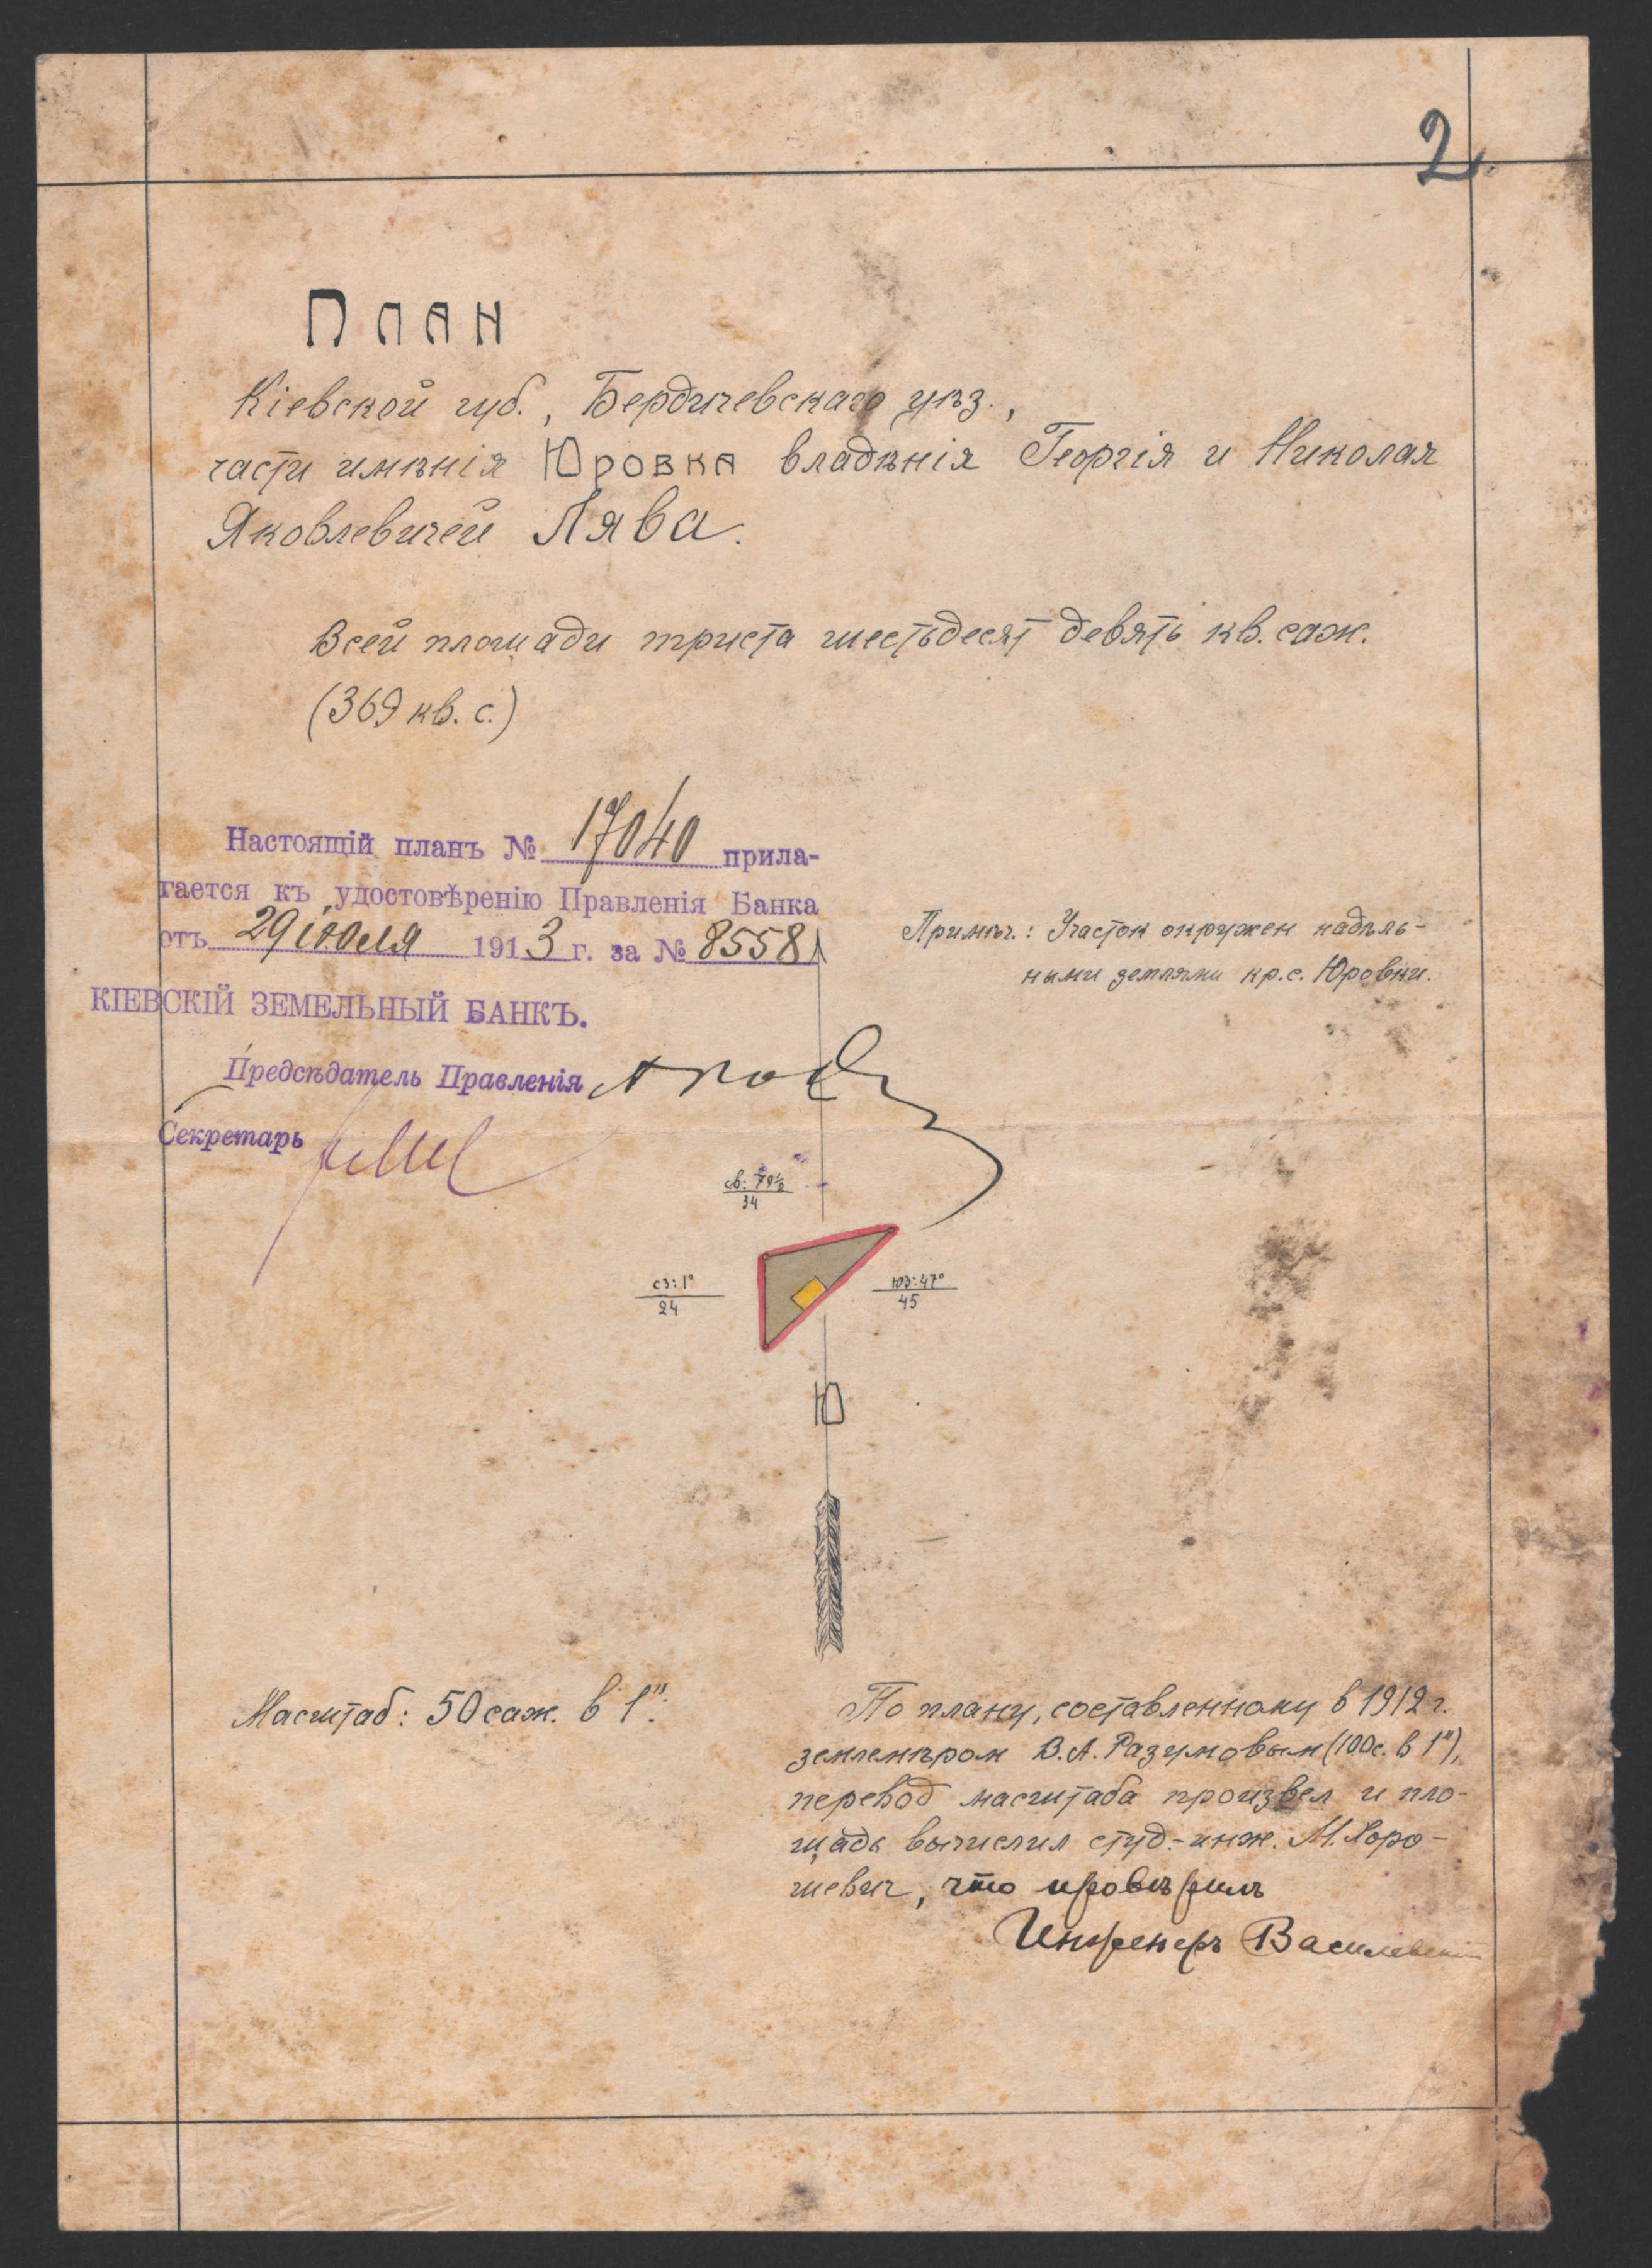 2
План
Кіевской губ., Бердичевскаго уѣз.,
части имѣнія Юровка владѣнія Георгія и Николая
Яковлевичей Лява.
Всей площади триста шестьдесят девять кв. саж.
(369 кв. с.)
Настоящій планъ № 17040 прила-
гается къ удостовѣренію Правленія Банка
отъ 29 іюля 1913 г. за № 8558
КІЕВСКІЙ ЗЕМЕЛЬНЫЙ БАНКЪ.
Предсѣдатель Правленія
Секретарь
Примѣч.: Участок окружен надѣль-
ными землями кр. с. Юровки.
св: 79½
34
сз: 1°
24
юз: 47°
45
Ю
Масштаб: 50 саж. в 1".
По плану, составленному в 1912 г.
землемѣром В. А. Разумовым (100 с. в 1"),
перевод масштаба произвел и пло-
щадь вычислил студ.-инж. М. Хоро-
шевич, что провѣрилъ
Инженеръ Василевскій